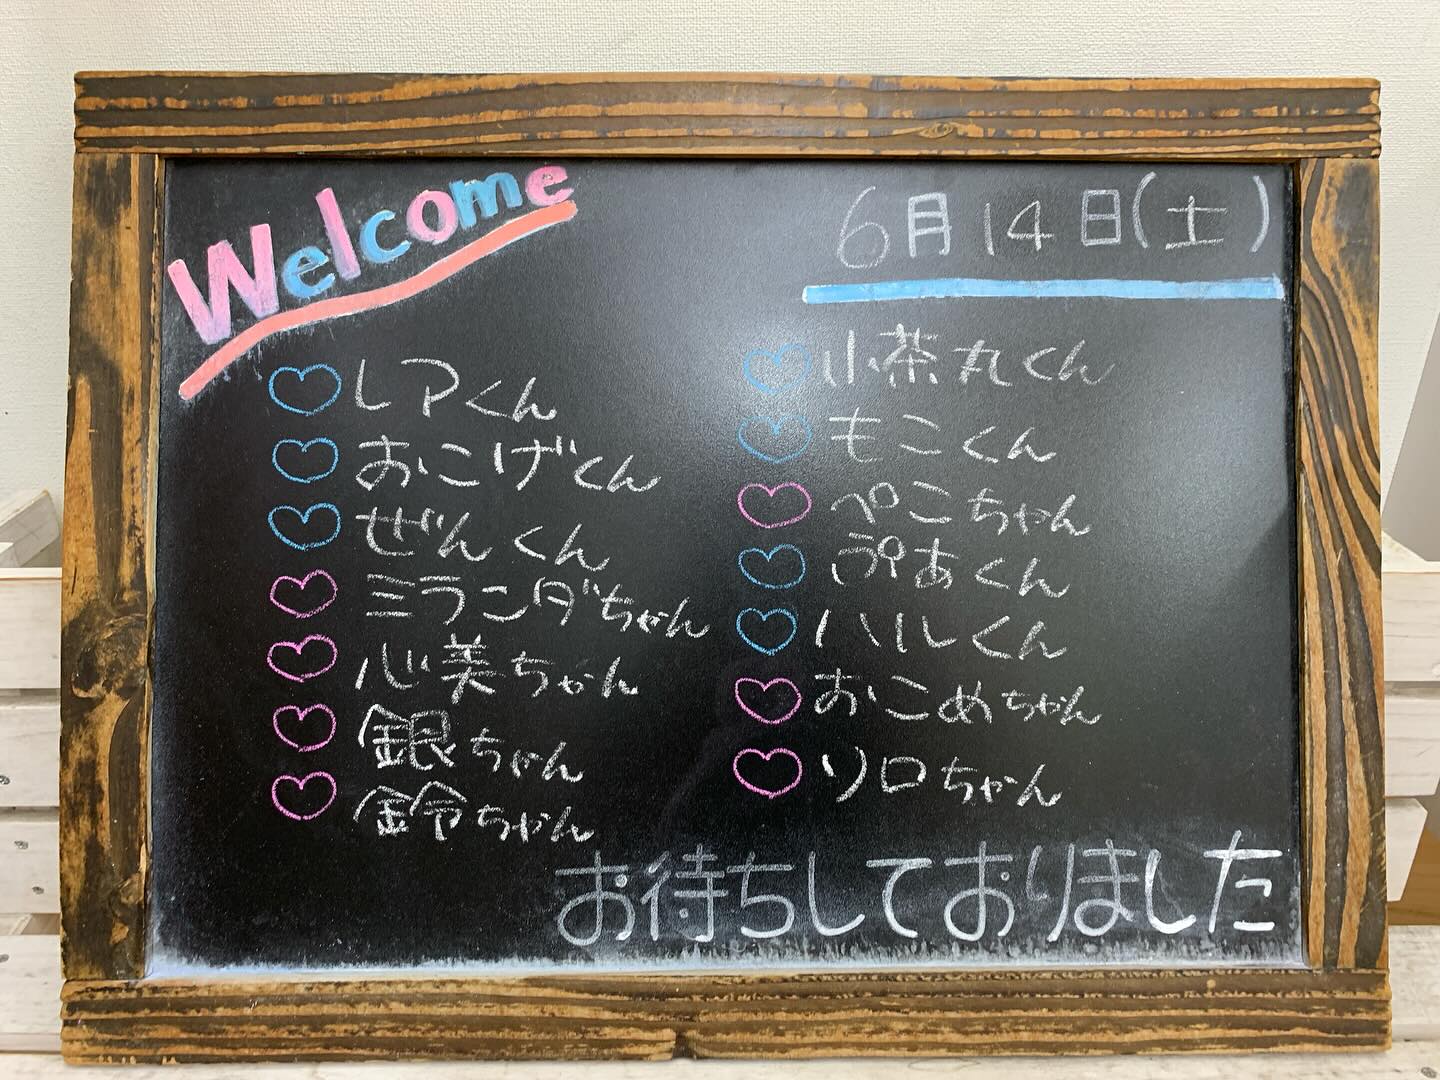 Welcome
6月14日(土)
レアくん
おこげくん
ぜんくん
ミランダちゃん
心美ちゃん
銀ちゃん
鈴ちゃん
小茶丸くん
もこくん
ペこちゃん
ぷあくん
ハルくん
おこめちゃん
ソロちゃん
お待ちしておりました